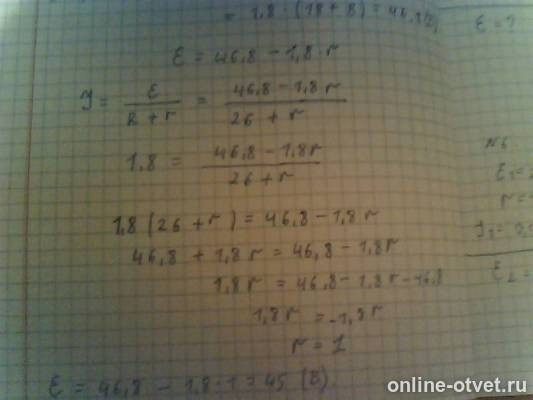 = 1,8 · (18 + 8) = 46,8(В)
ε = 46,8 - 1,8 r
J = ε / R + r = 46,8 - 1,8 r / 26 + r
1,8 = 46,8 - 1,8r / 26 + r
1,8 (26 + r) = 46,8 - 1,8 r
46,8 + 1,8 r = 46,8 - 1,8r
1,8 r = 46,8 - 1,8 r - 46,8
1,8 r = -1,8 r
r = 1
ε = 46,8 - 1,8 · 1 = 45 (В)
ε = ?
№6
online-otvet.ru